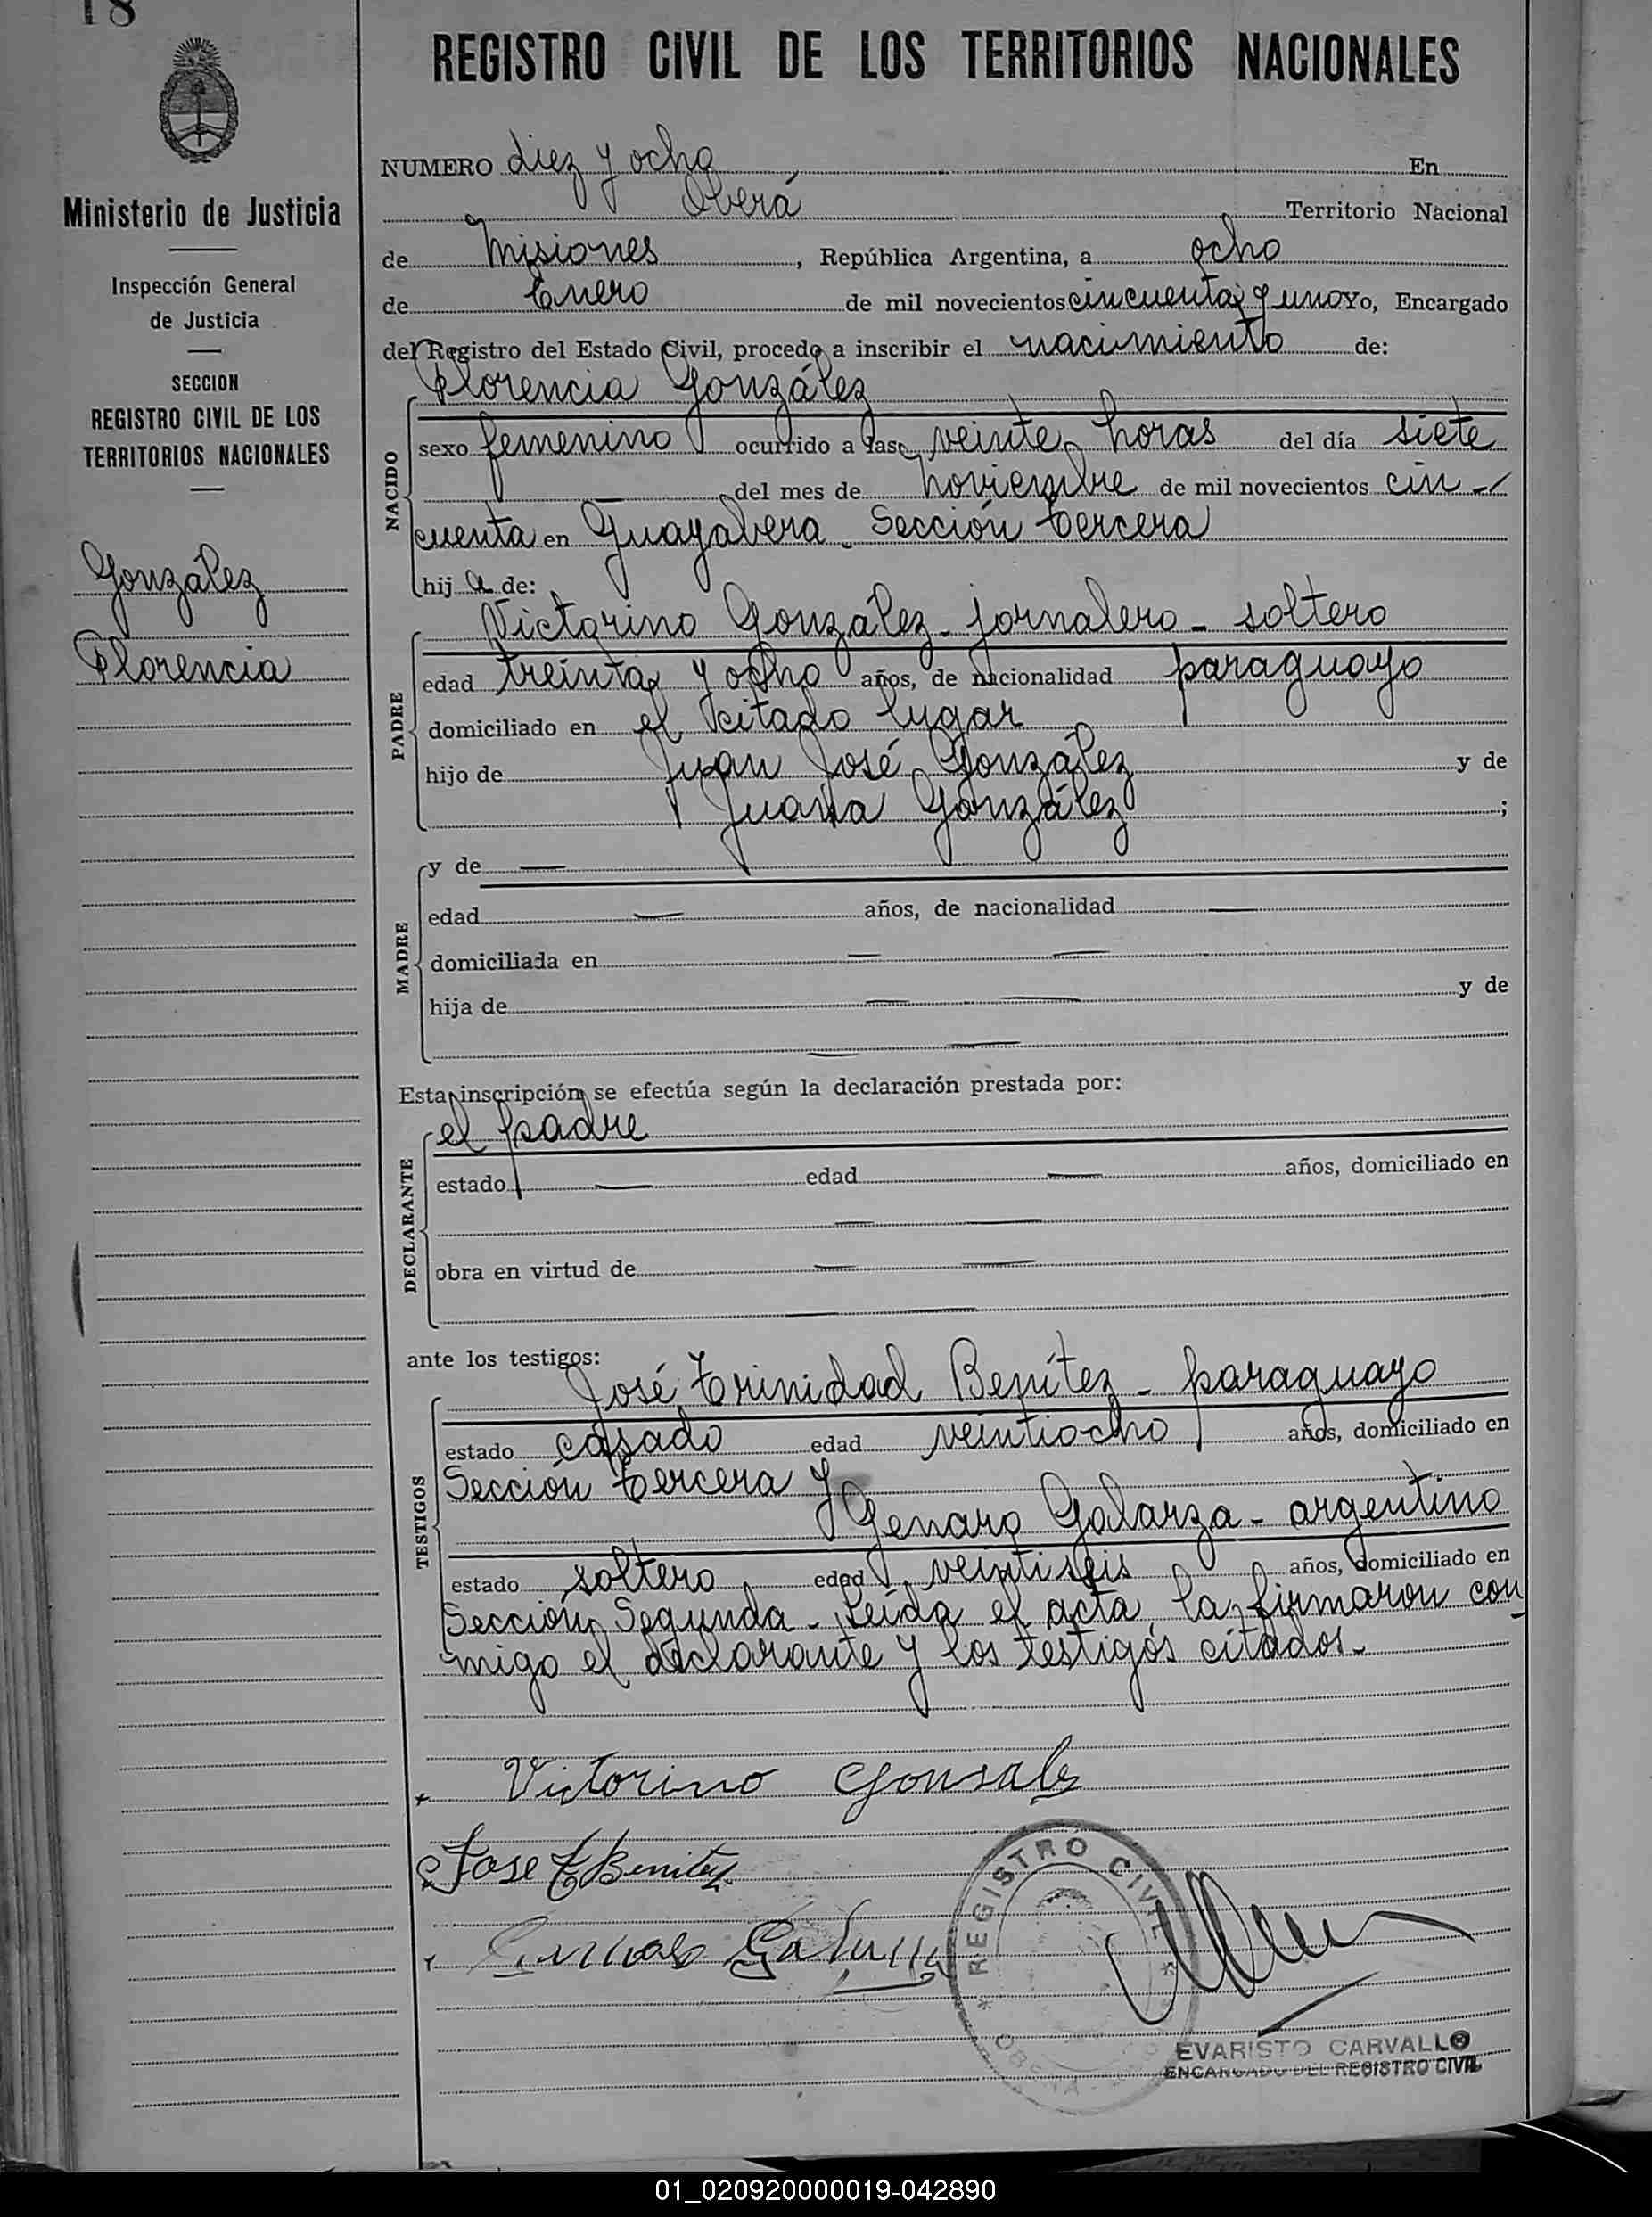 18
REGISTRO CIVIL DE LOS TERRITORIOS NACIONALES
Ministerio de Justicia
Inspección General
de Justicia
SECCION
REGISTRO CIVIL DE LOS
TERRITORIOS NACIONALES
González
Florencia
NUMERO diez y ocho En
Oberá Territorio Nacional
de Misiones, República Argentina, a ocho
de Enero de mil novecientos cincuenta y uno Yo, Encargado
del Registro del Estado Civil, procedo a inscribir el nacimiento de:
NACIDO
Florencia González
sexo femenino ocurrido a las veinte horas del día siete
del mes de noviembre de mil novecientos cin-
cuenta en Guayabera - Sección tercera
hij a de:
PADRE
Victorino González - jornalero - soltero
edad treinta y ocho años, de nacionalidad paraguayo
domiciliado en el citado lugar
hijo de Juan José González y de
Juana González;
MADRE
y de —
edad — años, de nacionalidad —
domiciliada en — —
hija de — — y de
— —
Esta inscripción se efectúa según la declaración prestada por:
DECLARANTE
el padre
estado — edad — años, domiciliado en
— —
obra en virtud de — —
— —
ante los testigos:
TESTIGOS
José Trinidad Benítez - paraguayo
estado casado edad veintiocho años, domiciliado en
Sección tercera y
Genaro Galarza - argentino
estado soltero edad veintiseis años, domiciliado en
Sección Segunda - Leída el acta la firmaron con
migo el declarante y los testigos citados.-
Victorino Gonsalez
Jose T Benitez
Galarza
REGISTRO CIVIL
EVARISTO CARVALLO
ENCARGADO DEL REGISTRO CIVIL
01_020920000019-042890